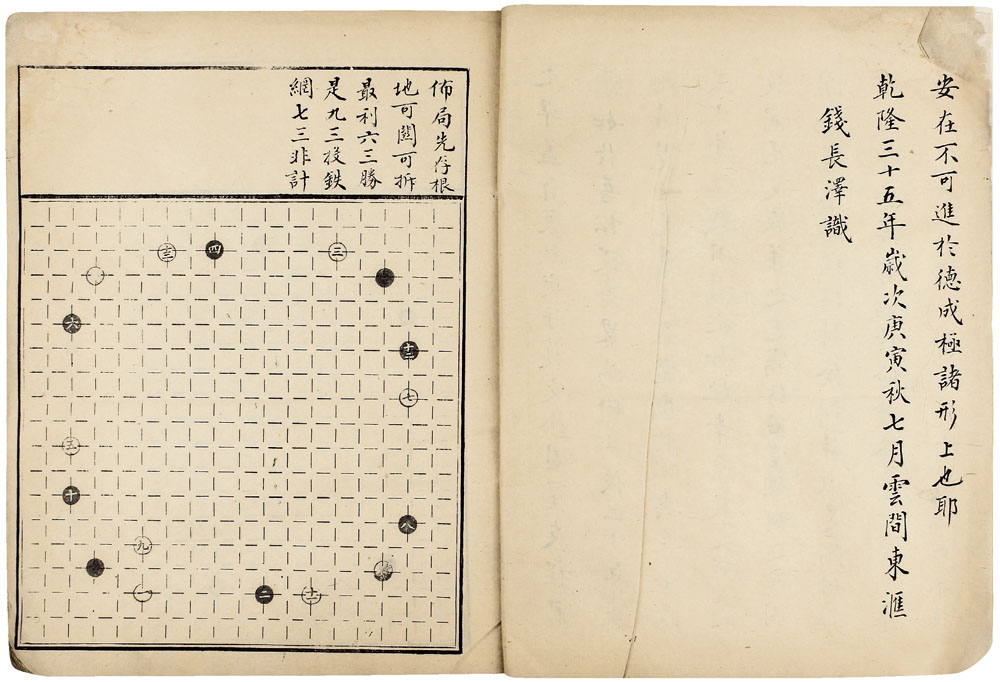 安在不可進於德成極諸形上也耶
乾隆三十五年歲次庚寅秋七月雲間東滙
錢長澤識
佈局先存根
地可關可拆
最利六三勝
是九三投鉄
網七三非計
三
四
十三
六
十二
七
五
十
八
九
一
二
十一